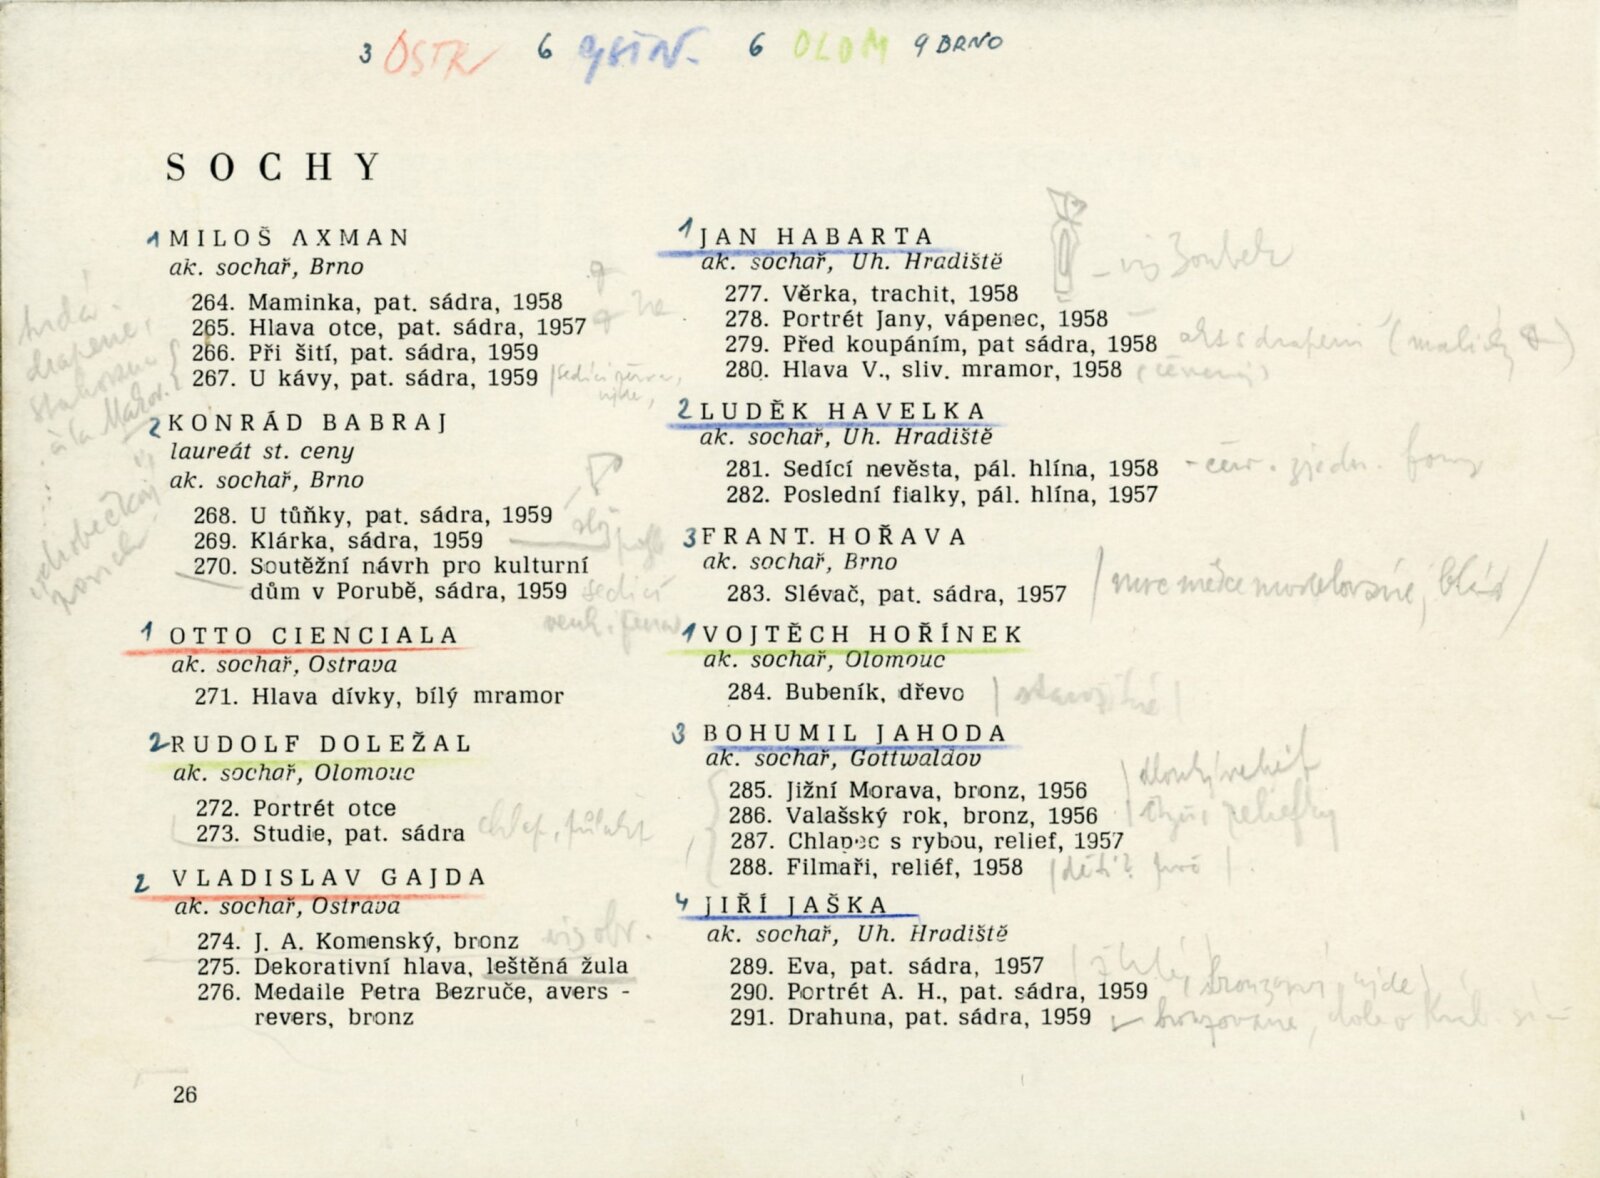 3 OSTR 6 GOTTW. 6 OLOM 9 BRNO
SOCHY
1 MILOŠ AXMAN
ak. sochař, Brno
264. Maminka, pat. sádra, 1958
265. Hlava otce, pat. sádra, 1957
266. Při šití, pat. sádra, 1959
267. U kávy, pat. sádra, 1959
2 KONRÁD BABRAJ
laureát st. ceny
ak. sochař, Brno
268. U tůňky, pat. sádra, 1959
269. Klárka, sádra, 1959
270. Soutěžní návrh pro kulturní
dům v Porubě, sádra, 1959
sedící
1 OTTO CIENCIALA
ak. sochař, Ostrava
271. Hlava dívky, bílý mramor
2 RUDOLF DOLEŽAL
ak. sochař, Olomouc
272. Portrét otce
273. Studie, pat. sádra
2 VLADISLAV GAJDA
ak. sochař, Ostrava
274. J. A. Komenský, bronz
viz obr.
275. Dekorativní hlava, leštěná žula
276. Medaile Petra Bezruče, avers -
revers, bronz
1 JAN HABARTA
ak. sochař, Uh. Hradiště
- viz Zoubek
277. Věrka, trachit, 1958
278. Portrét Jany, vápenec, 1958
279. Před koupáním, pat sádra, 1958
akt s draperií
280. Hlava V., sliv. mramor, 1958
(červený)
2 LUDĚK HAVELKA
ak. sochař, Uh. Hradiště
281. Sedící nevěsta, pál. hlína, 1958
- červ. zjedn. formy
282. Poslední fialky, pál. hlína, 1957
3 FRANT. HOŘAVA
ak. sochař, Brno
283. Slévač, pat. sádra, 1957
1 VOJTĚCH HOŘÍNEK
ak. sochař, Olomouc
284. Bubeník, dřevo
3 BOHUMIL JAHODA
ak. sochař, Gottwaldov
285. Jižní Morava, bronz, 1956
dlouhý reliéf
286. Valašský rok, bronz, 1956
287. Chlapec s rybou, relief, 1957
288. Filmaři, reliéf, 1958
4 JIŘÍ JAŠKA
ak. sochař, Uh. Hradiště
289. Eva, pat. sádra, 1957
290. Portrét A. H., pat. sádra, 1959
291. Drahuna, pat. sádra, 1959
bronzované, dole
26